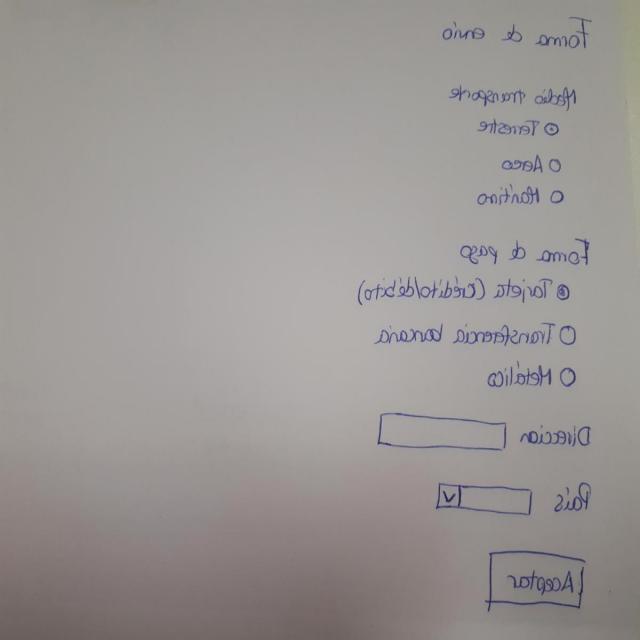 Forma de envio
Medio transporte
Terrestre
Aereo
Marítimo
Forma de pago
Tarjeta (crédito/débito)
Transferencia bancaria
Metálico
Direccion
País
Aceptar